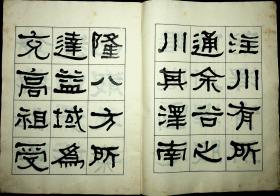 注川有所
通余谷之
川其澤南
隆八方所
達益域爲
充高祖受